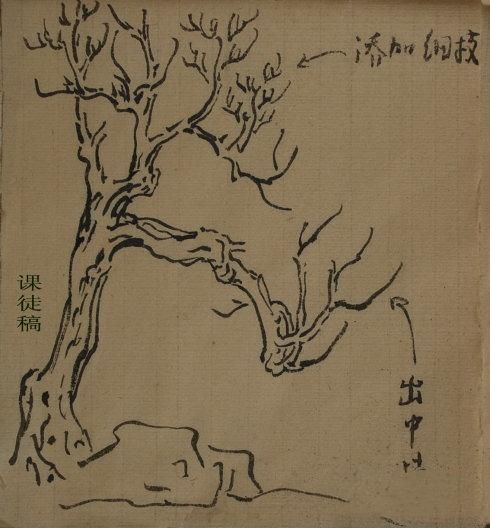 添加细枝
课徒稿
出中